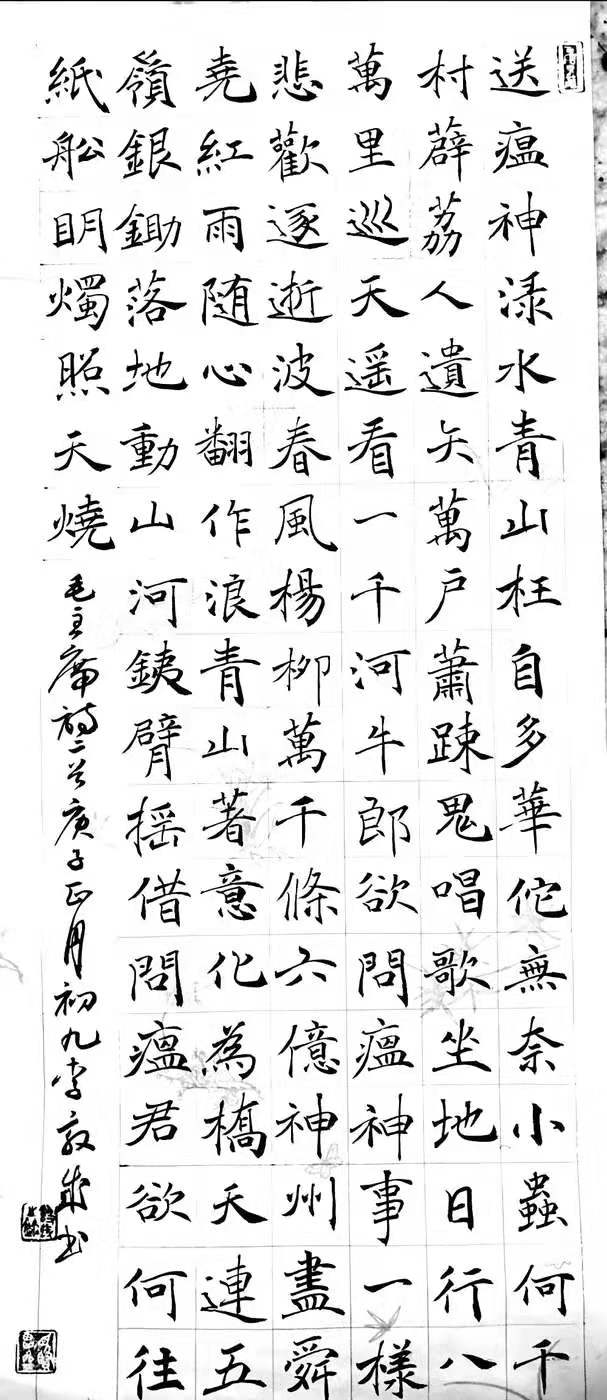 送瘟神渌水青山枉自多華佗無奈小蟲何千
村薜荔人遺矢萬户蕭踈鬼唱歌坐地日行八
萬里巡天遥看一千河牛郎欲問瘟神事一樣
悲歡逐逝波春風楊柳萬千條六億神州盡舜
堯紅雨随心翻作浪青山著意化為橋天連五
嶺銀鋤落地動山河銕臂摇借問瘟君欲何往
紙舩眀燭照天燒
毛主席詩二首庚子正月初九李敦书